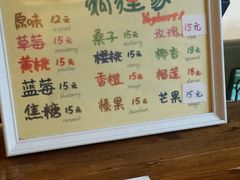 Yoghurt
原味 12元 original 桑子 15元 玫瑰 15元
草莓 15元 strawberry 樱桃 15元 cherry 椰香 18元
黄桃 15元 peaches 香橙 15元 orange 榴莲 18元
蓝莓 15元 blueberry 榛果 15元 hazelnut 芒果 15元 mango
焦糖 15元 caramel